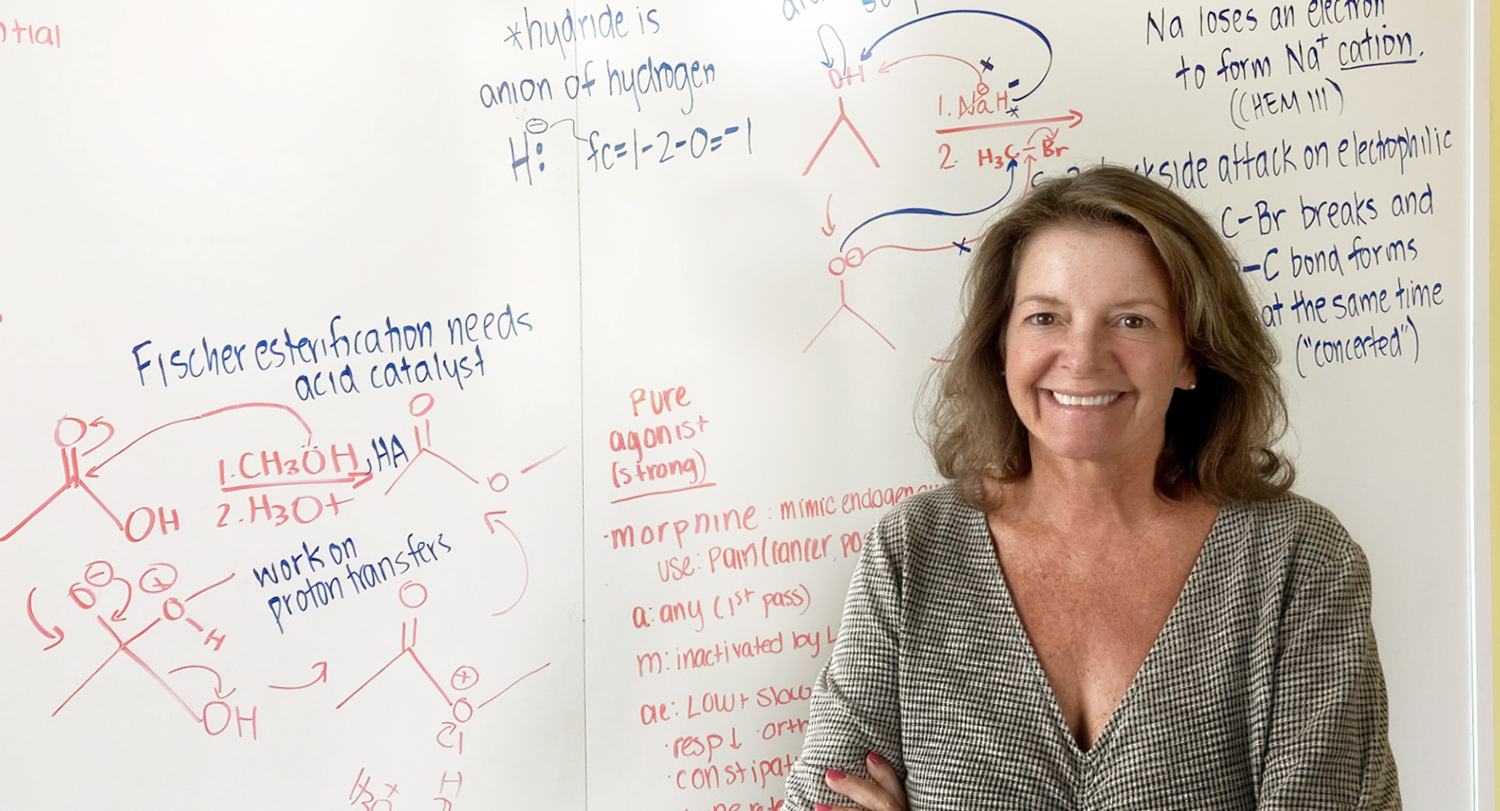 ntial
*hydride is
anion of hydrogen
H:⊖ fc=1-2-0=-1
OH
1. NaH
2. H3C-Br
O⊖
Na loses an electron
to form Na+ cation.
(CHEM 111)
backside attack on electrophilic
C-Br breaks and
-C bond forms
at the same time
("concerted")
Fischer esterification needs
acid catalyst
O
OH
1. CH3ÖH, HA
2. H3O+
O
O
work on
proton transfers
O⊖
⊕
O
H
OH
O
⊕
O
H
Pure
agonist
(strong)
·morphine: mimic
use: Pain (cancer,
a: any (1st pass)
m: inactivated by
ae: LOW+ slow
·resp↓ ·orth
·constipat